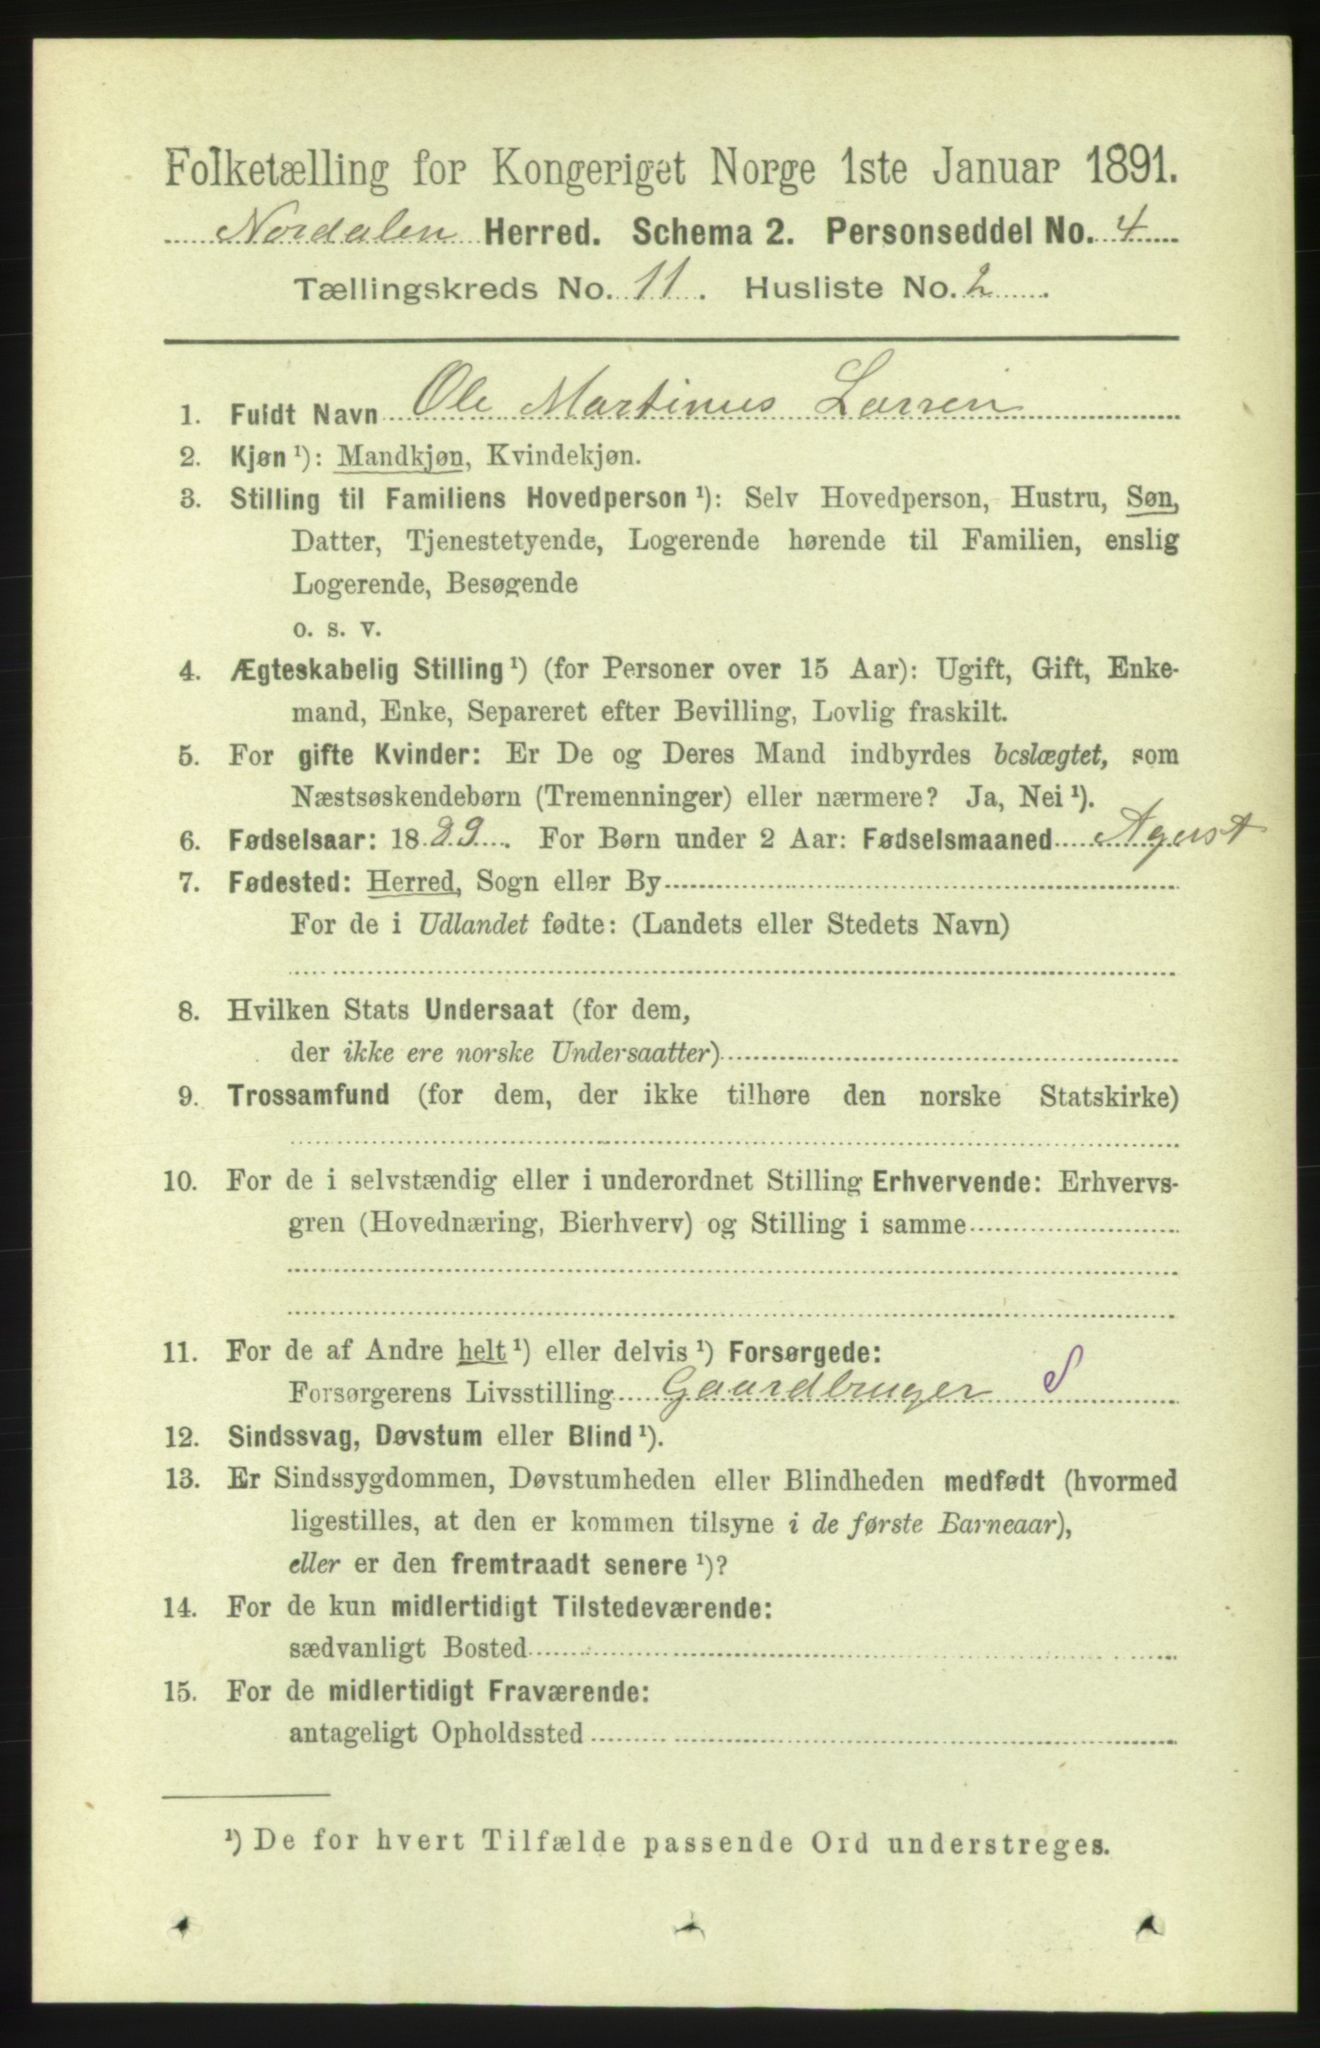 Folketælling for Kongeriget Norge 1ste Januar 1891.
Nordalen Herred. Schema 2. Personseddel No. 4
Tællingskreds No. 11. Husliste No. 2
1. Fuldt Navn Ole Martinus Larsen
2. Kjøn ¹): Mandkjøn, Kvindekjøn.
3. Stilling til Familiens Hovedperson ¹): Selv Hovedperson, Hustru, Søn,
Datter, Tjenestetyende, Logerende hørende til Familien, enslig
Logerende, Besøgende
o. s. v.
4. Ægteskabelig Stilling ¹) (for Personer over 15 Aar): Ugift, Gift, Enke-
mand, Enke, Separeret efter Bevilling, Lovlig fraskilt.
5. For gifte Kvinder: Er De og Deres Mand indbyrdes beslægtet, som
Næstsøskendebørn (Tremenninger) eller nærmere? Ja, Nei ¹).
6. Fødselsaar: 1889. For Børn under 2 Aar: Fødselsmaaned Agust
7. Fødested: Herred, Sogn eller By
For de i Udlandet fødte: (Landets eller Stedets Navn)
8. Hvilken Stats Undersaat (for dem,
der ikke ere norske Undersaatter)
9. Trossamfund (for dem, der ikke tilhøre den norske Statskirke)
10. For de i selvstændig eller i underordnet Stilling Erhvervende: Erhvervs-
gren (Hovednæring, Bierhverv) og Stilling i samme
11. For de af Andre helt ¹) eller delvis ¹) Forsørgede:
Forsørgerens Livsstilling Gaardbruger S
12. Sindssvag, Døvstum eller Blind ¹).
13. Er Sindssygdommen, Døvstumheden eller Blindheden medfødt (hvormed
ligestilles, at den er kommen tilsyne i de første Barneaar),
eller er den fremtraadt senere ¹)?
14. For de kun midlertidigt Tilstedeværende:
sædvanligt Bosted
15. For de midlertidigt Fraværende:
antageligt Opholdssted
¹) De for hvert Tilfælde passende Ord understreges.